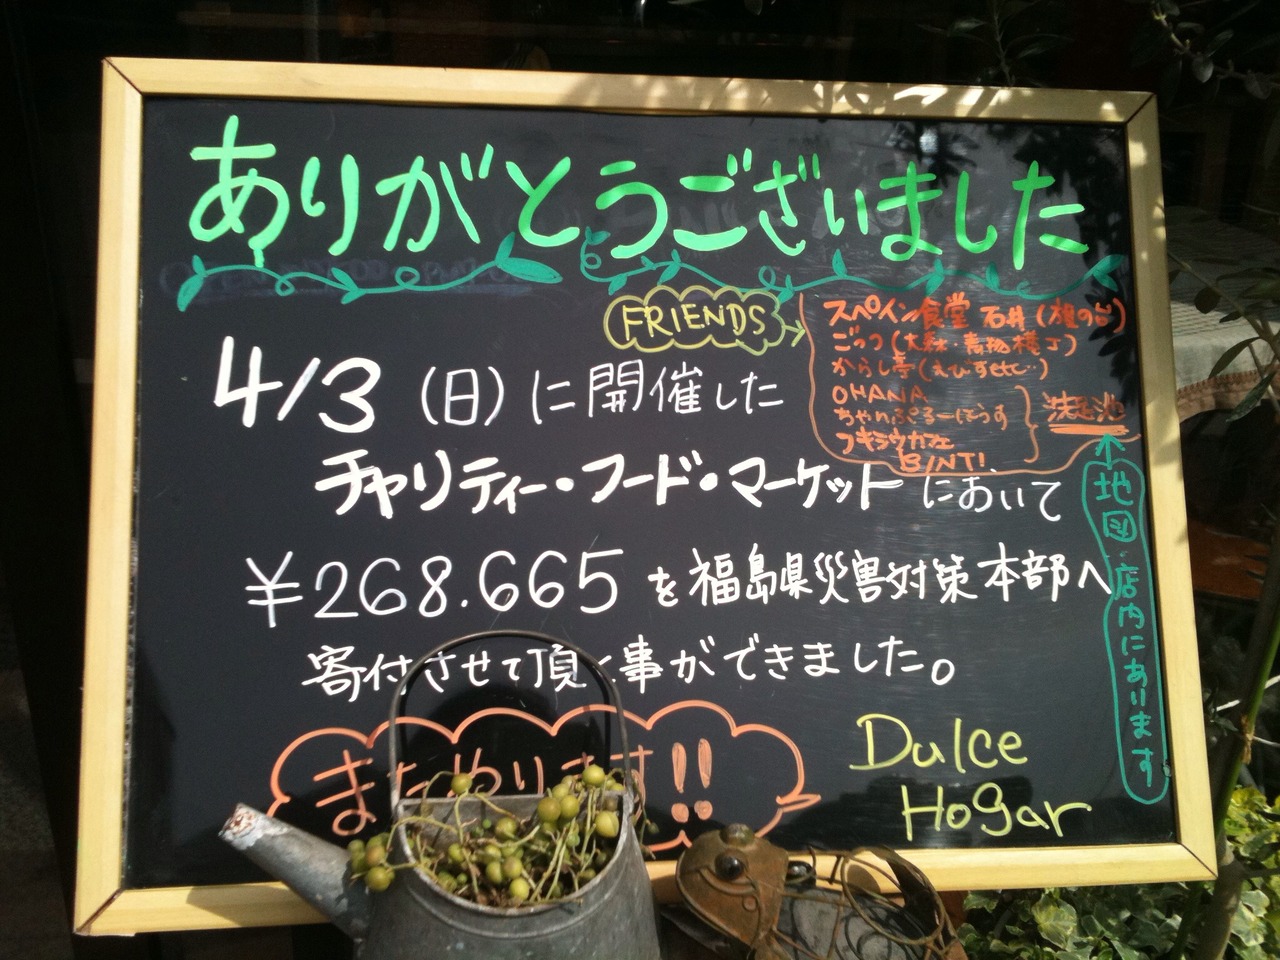 ありがとうございました
FRIENDS
スペイン食堂 石井 (旗の台)
ごっつ (大森・青物横丁)
からし亭 (えびすetc…)
OHANA
ちゃんぷるーはうす
フキラウカフェ
BINT!
洗足池
地図・店内にあります
4/3 (日) に開催した
チャリティー・フード・マーケット において
¥268.665 を福島県災害対策本部へ
寄付させて頂く事ができました。
またやります!!
Dulce
Hogar